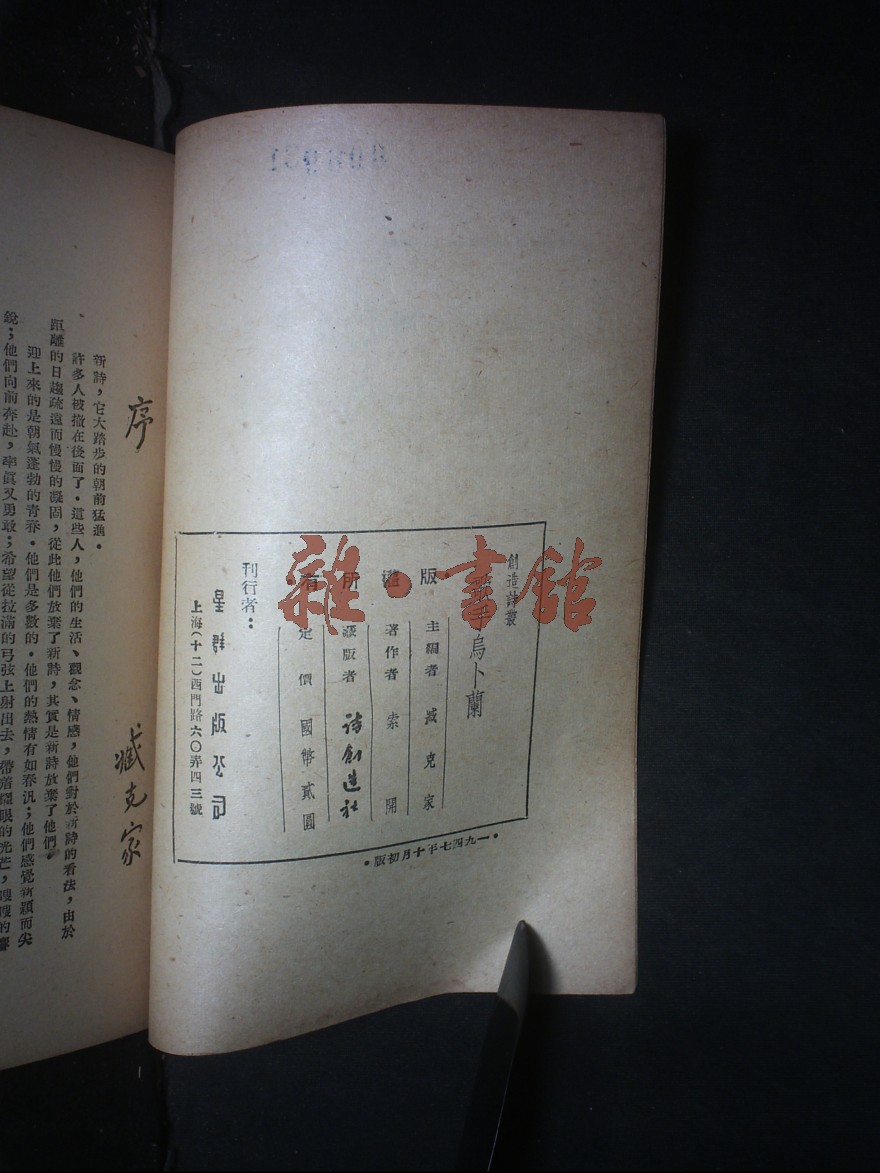 創造詩叢
歌手烏卜蘭
版權所有
主編者 臧克家
著作者 索開
出版者 詩創造社
定價 國幣貳圓
刊行者：
星群出版公司
上海(十二)西門路六〇弄四三號
·一九四七年十月初版·
雜·書館
序
臧克家
新詩，它大踏步的朝前猛進。
許多人被撤在後面了。這些人，他們的生活、觀念、情感，他們對於新詩的看法，由於
距離的日趨疏遠而慢慢的凝固，從此他們放棄了新詩，其實是新詩放棄了他們。
迎上來的是朝氣蓬勃的青春。他們是多數的。他們的熱情有如春汛；他們感覺新穎而尖
銳；他們向前奔赴，率眞又勇敢；希望從拉滿的弓弦上射出去，帶着耀眼的光芒，嗖嗖的響